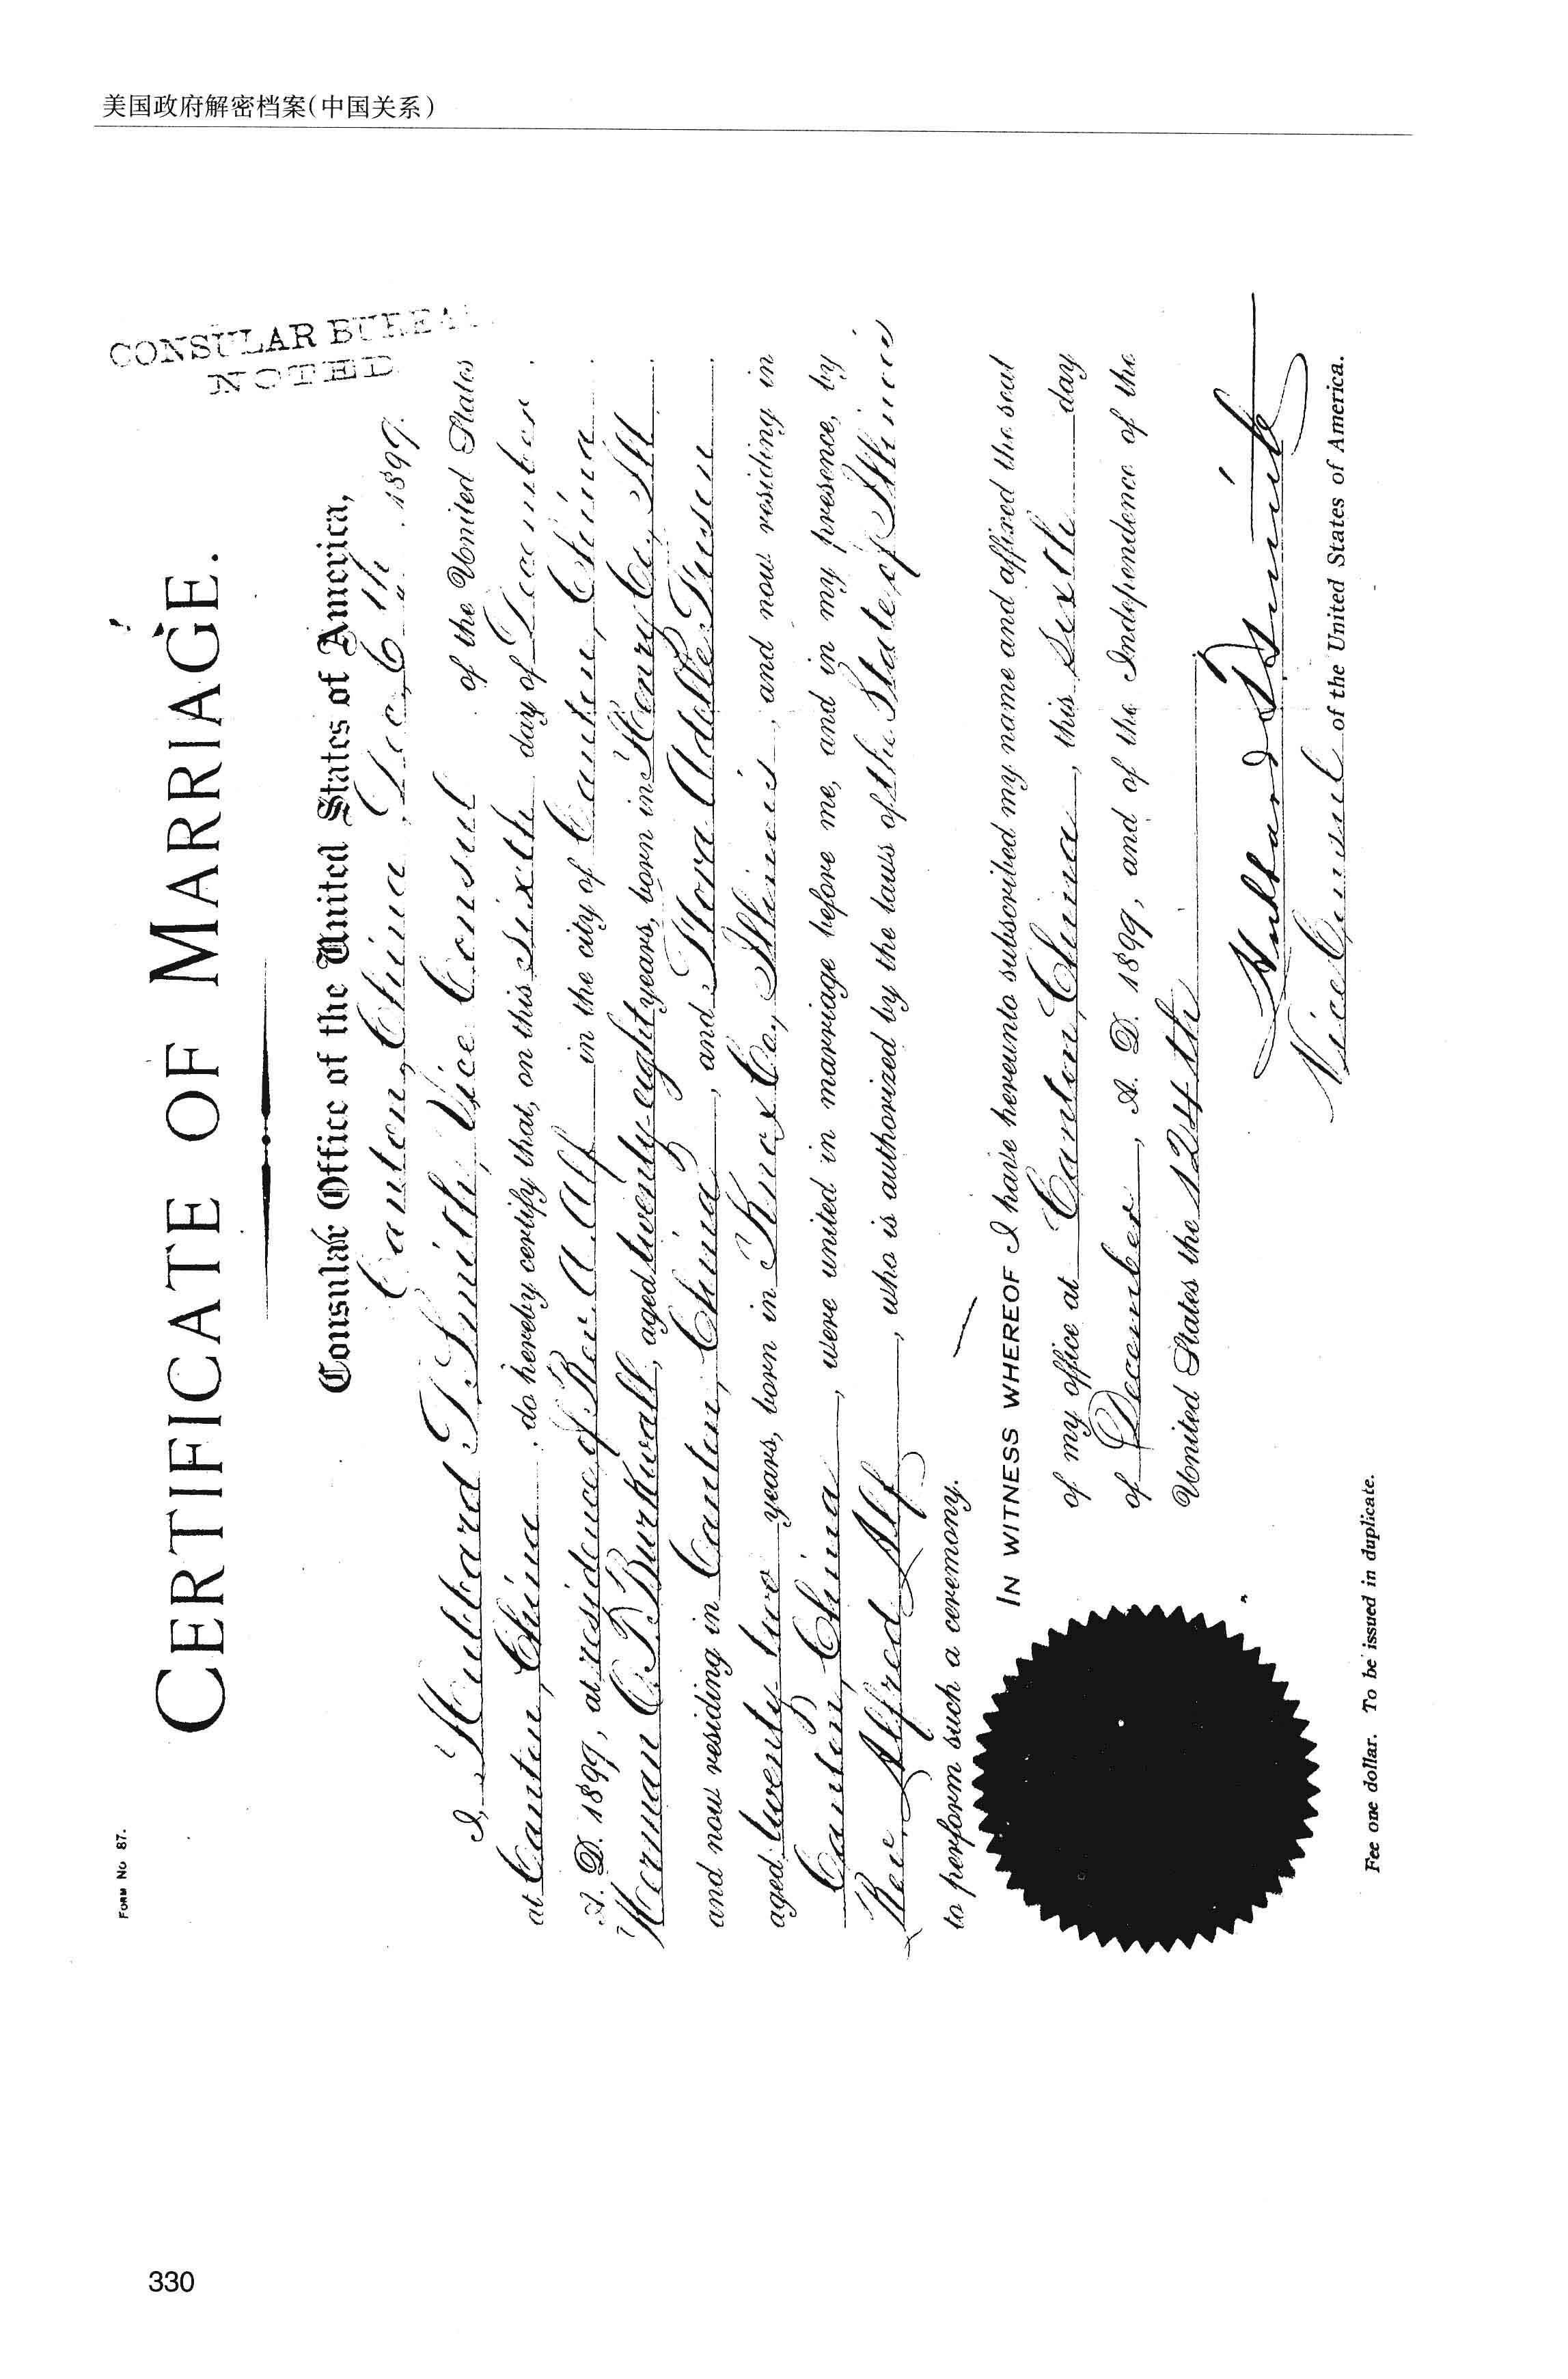 美国政府解密档案(中国关系)
FORM No 87.
CONSULAR BUREAU
NOTED
CERTIFICATE OF MARRIAGE.
Consular Office of the United States of America,
Canton, China, Dec. 6th, 1899.
I, Hubbard T. Smith, Vice Consul of the United States
at Canton, China, do hereby certify that, on this sixth day of December,
A. D. 1899, at residence of Rev. A. Alf in the city of Canton, China
Herman C. D. Burkwall, aged twenty-eight years, born in Henry Co., Ill
and now residing in Canton, China, and Flora Adelle
aged twenty two years, born in Knox Co., Illinois, and now residing in
Canton, China, were united in marriage before me, and in my presence, by
Rev. Alfred Alf, who is authorized by the laws of the State of Illinois
to perform such a ceremony.
IN WITNESS WHEREOF I have hereunto subscribed my name and affixed the seal
of my office at Canton, China, this sixth day
of December, A. D. 1899, and of the Independence of the
United States the 124th
Hubbard T. Smith
Vice Consul of the United States of America.
Fee one dollar. To be issued in duplicate.
330